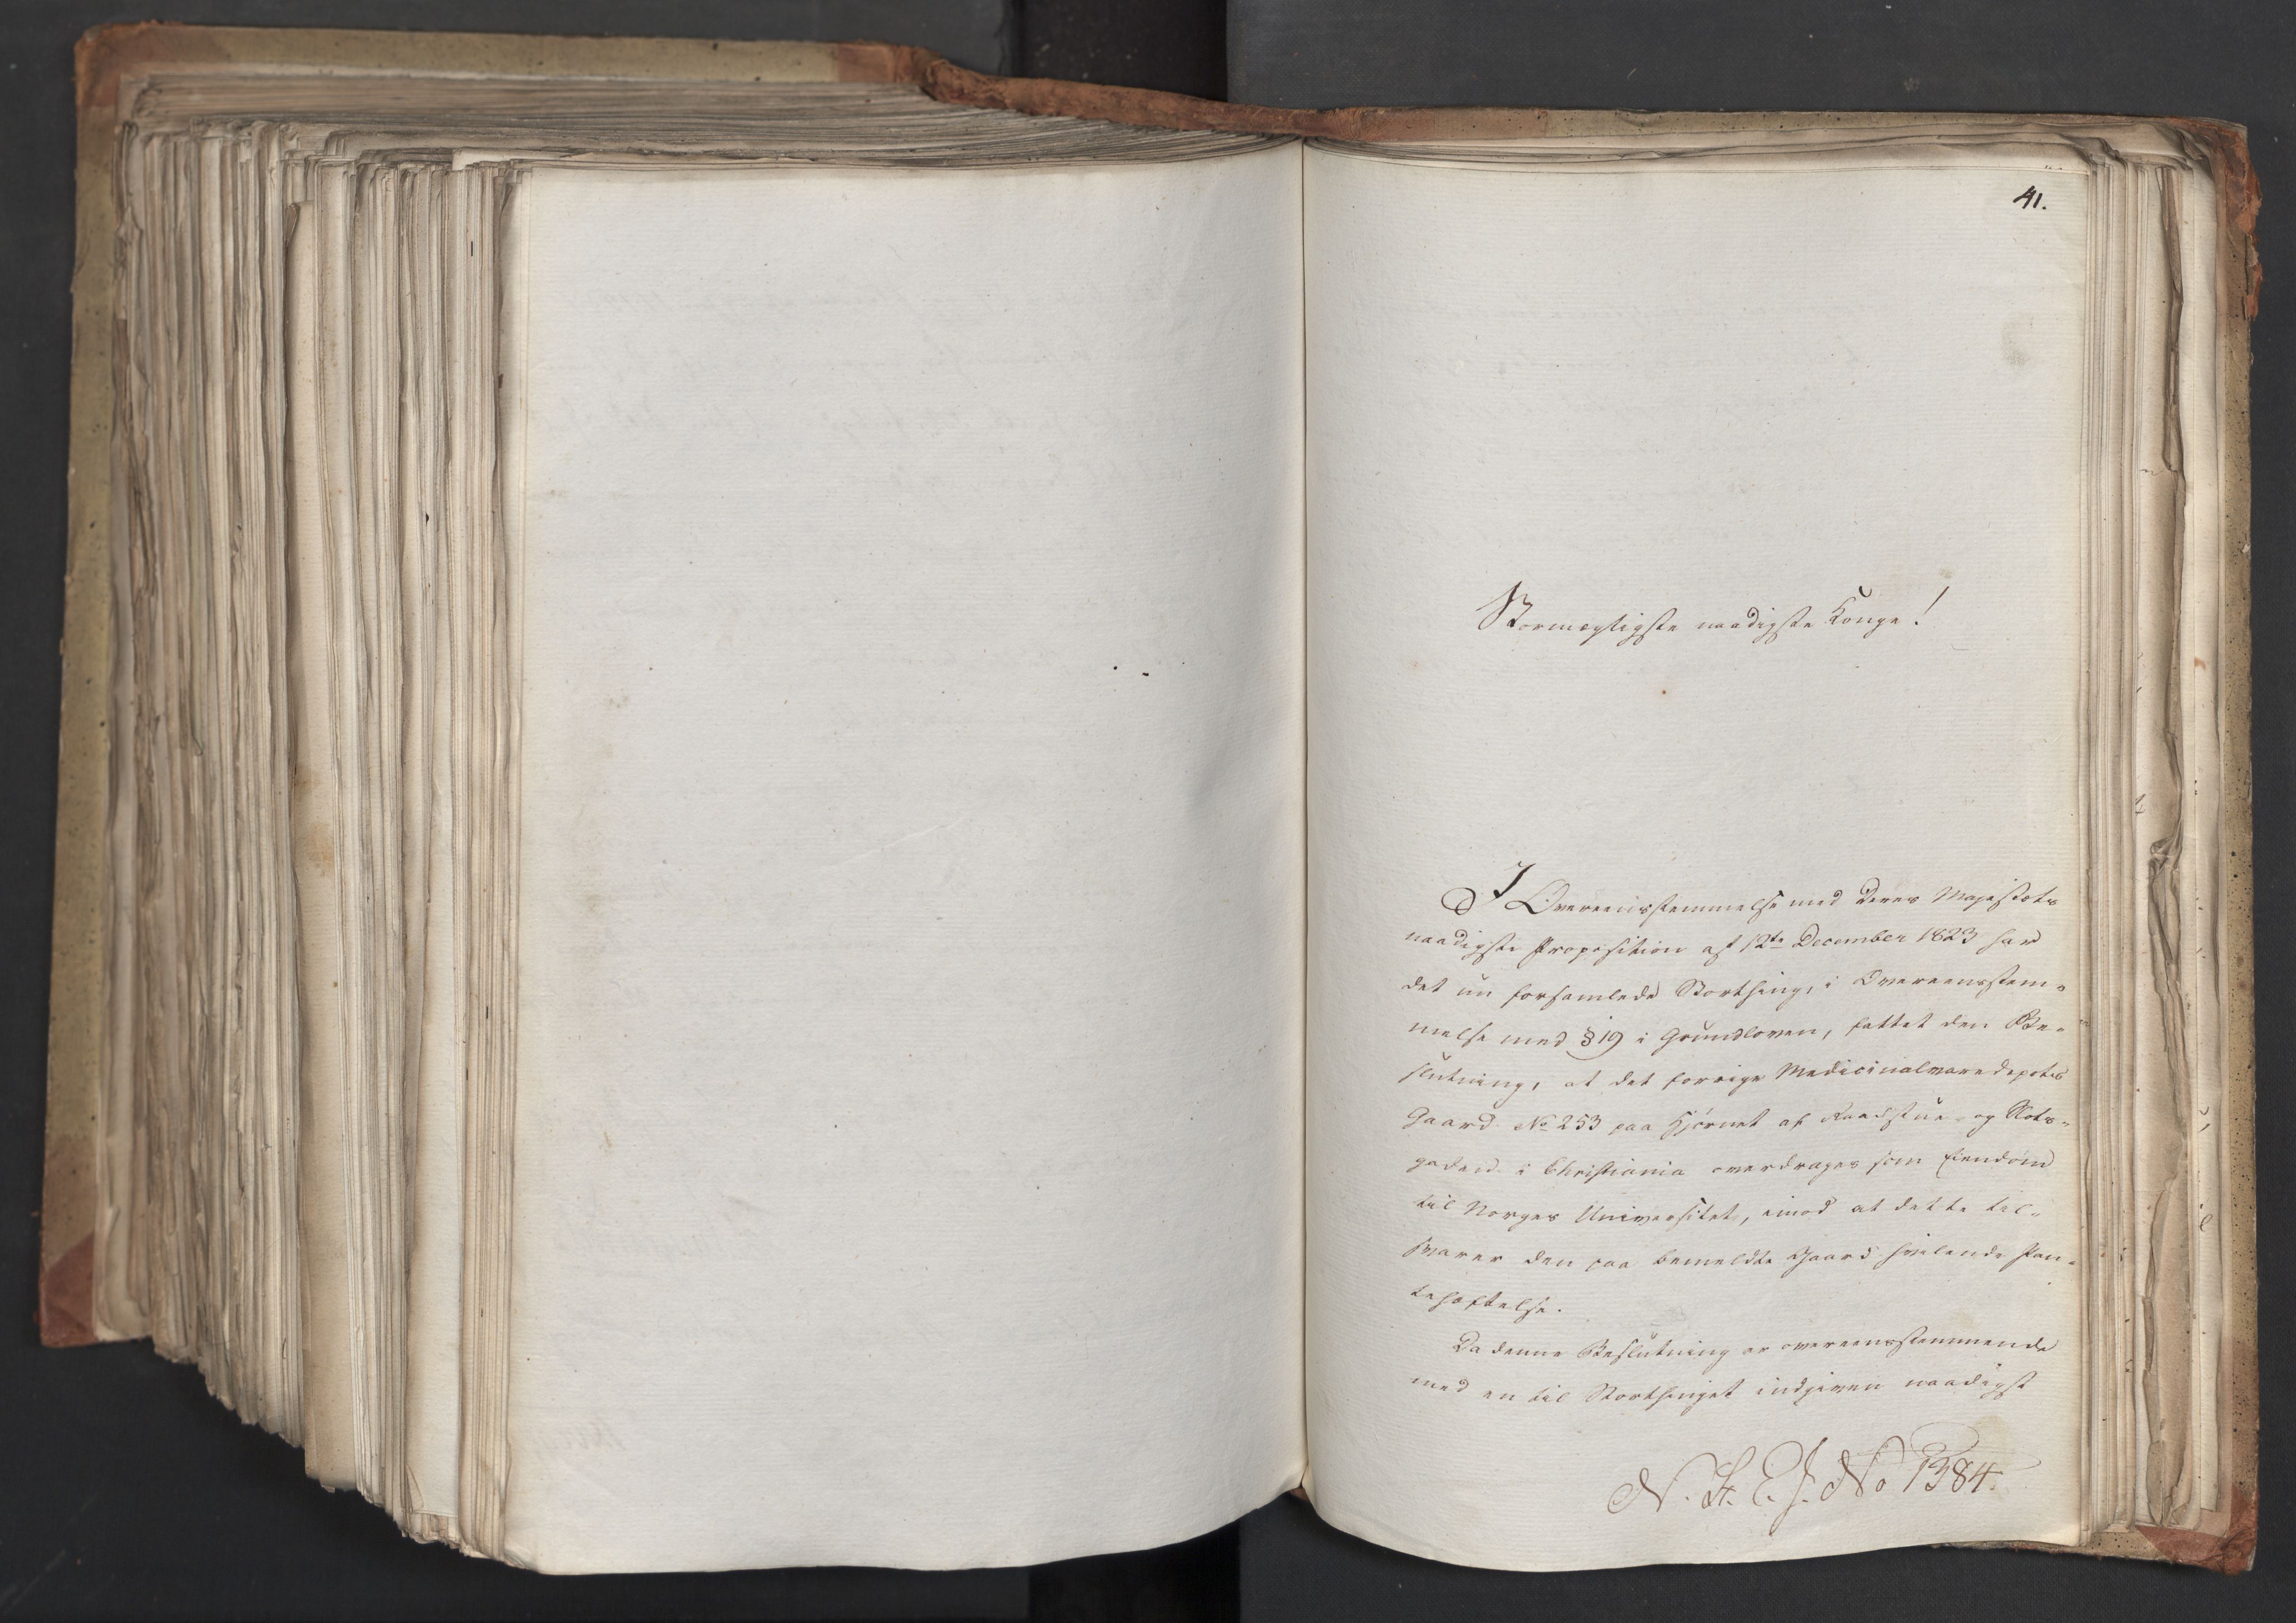 41.
Stormægtigste naadigste Konge!
I Overeensstemmelse med Deres Majestæts
naadigste Proposition af 12te December 1823 har
det nu forsamlede Storthing, i Overeensstem-
melse med § 19 i Grundloven, fattet den Be-
slutning, at det forrige Medicinalvaredepots
Gaard No 253 paa Hjørnet af Raadstue- og Slots-
gaden i Christiania overdrages som Eiendom
til Norges Universitet, imod at dette til-
svarer den paa bemeldte Gaard hvilende Pan-
tehæftelse.
Da denne Beslutning er overeensstemmende
med en til Storthinget indgiven naadigst
N. St. E. J. No 1384.